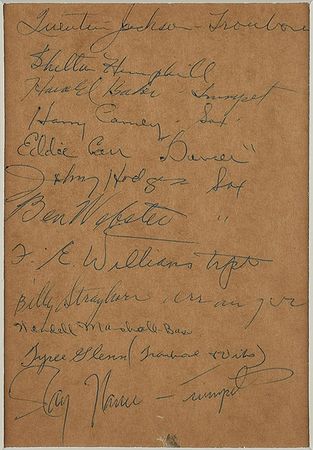 Quentin Jackson - Trombone
Shelton Hemphill
Harold Baker - Trumpet
Harry Carney - Sax
Eddie Carr "Dancer"
Johnny Hodges Sax
Ben Webster "
F. E. Williams trpt
Billy Strayhorn arranger
Wendell Marshall Bass
Tyree Glenn (Trombone & Vibs)
Ray Nance - Trumpet